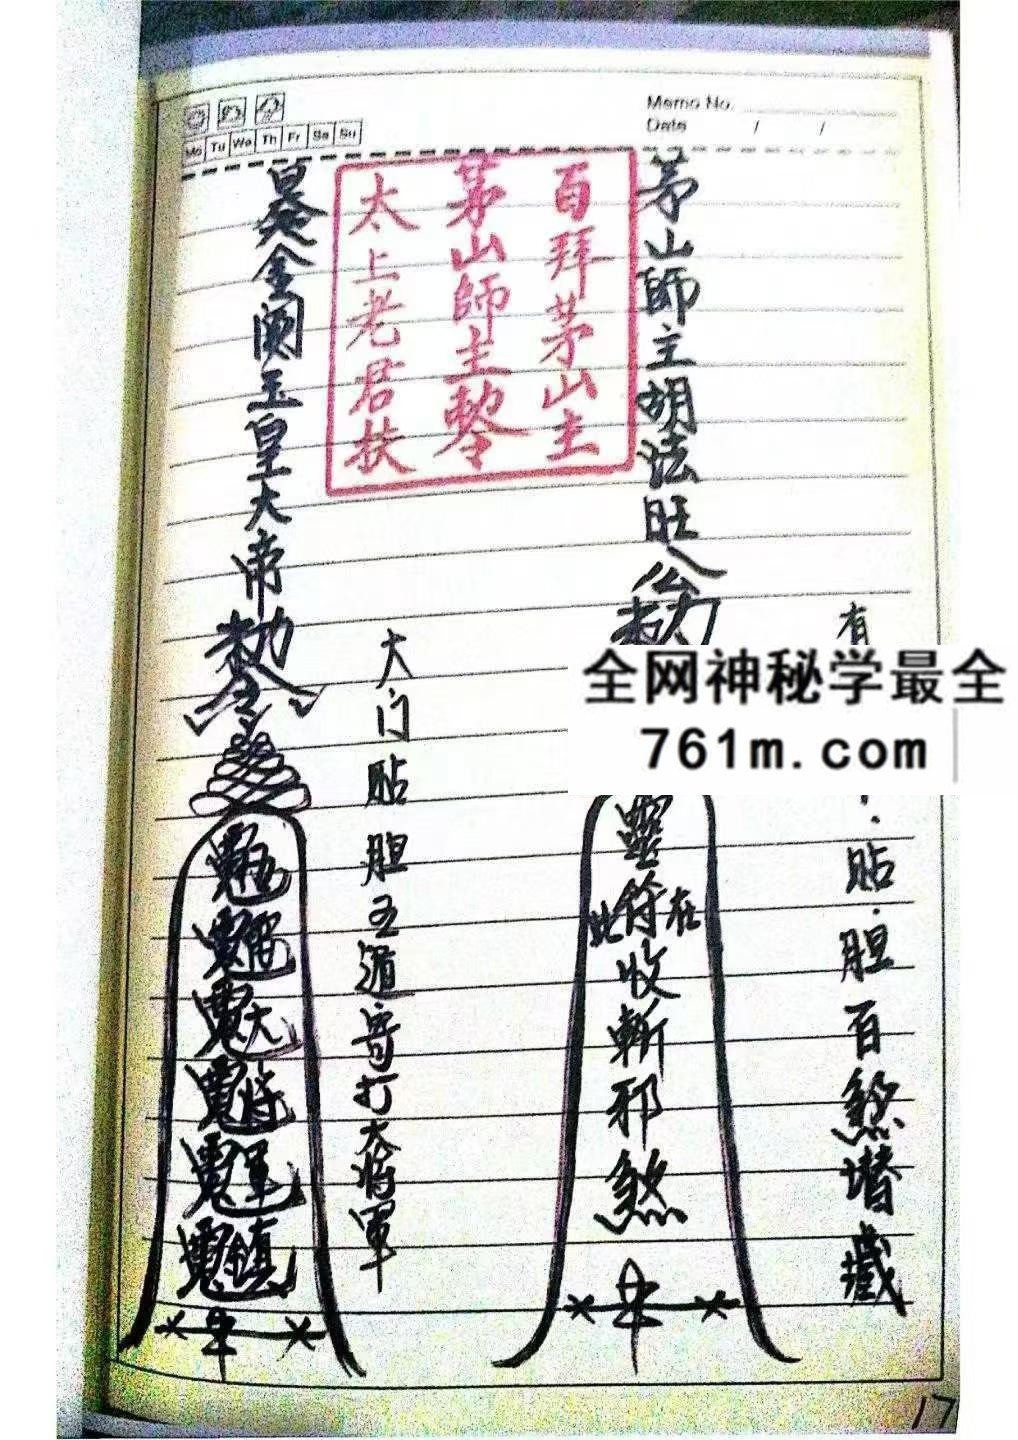 Memo No.
Date / /
Mo Tu We Th Fr Sa Su
茅山師主胡法旺
有
贴胆百煞潜藏
靈符收斬邪煞
此
在
百拜茅山主
茅山師主
太上老君扶
金阙玉皇大帝
大门贴胆五遁奇打大将軍
全网神秘学最全
761m.com
17